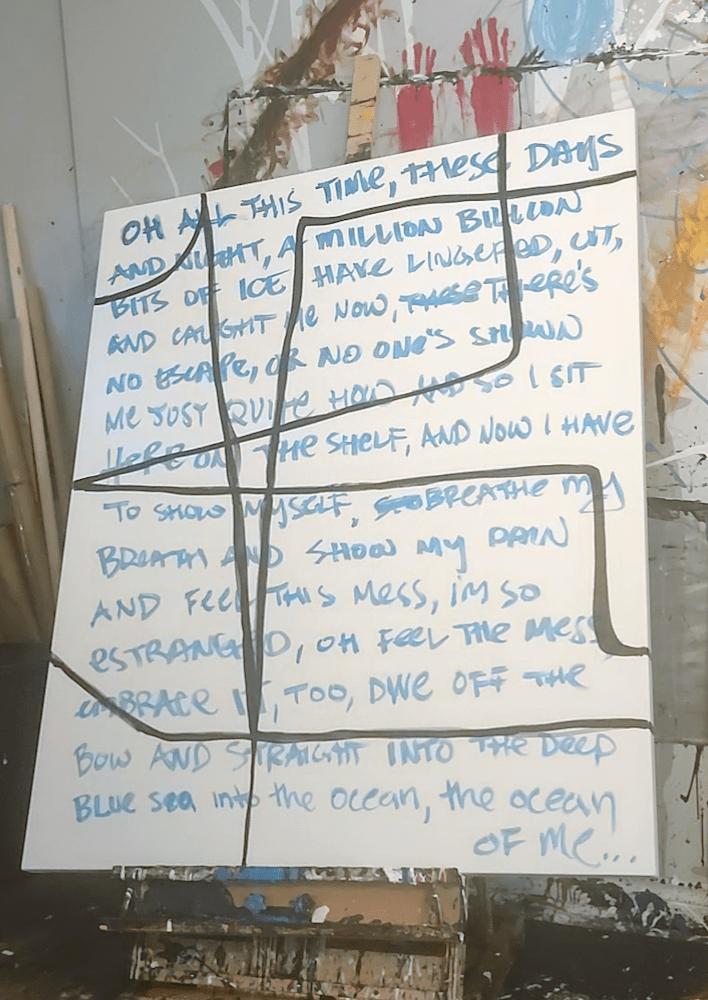 OH ALL THIS TIME, THESE DAYS
AND NIGHT, A MILLION BILLION
BITS OF ICE HAVE LINGERED, CUT,
AND CAUGHT ME NOW, THESE THERE'S
NO ESCAPE, OR NO ONE'S SHOWN
ME JUST QUITE HOW AND SO I SIT
HERE ON THE SHELF, AND NOW I HAVE
TO SHOW MYSELF, BREATHE MY
BREATH AND SHOW MY PAIN
AND FEEL THIS MESS, I'M SO
ESTRANGED, OH FEEL THE MESS
EMBRACE IT, TOO, DIVE OFF THE
BOW AND STRAIGHT INTO THE DEEP
BLUE Sea into the ocean, the ocean
OF Me...